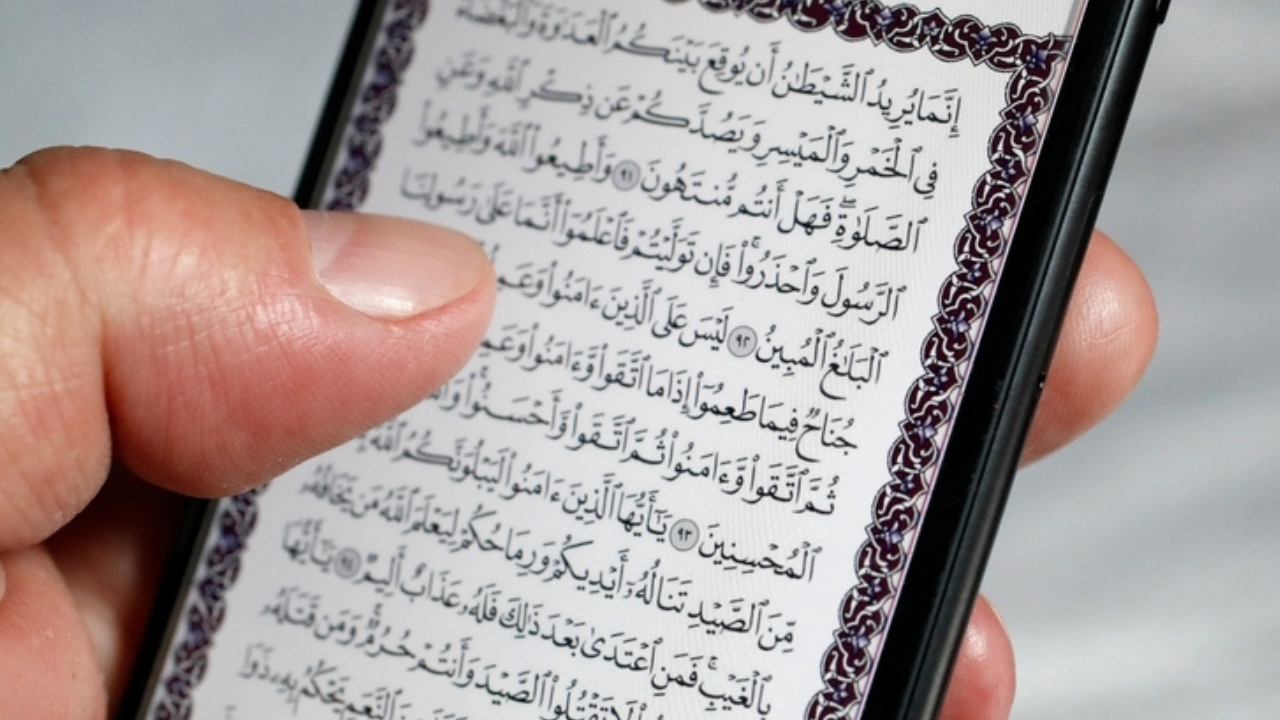 إِنَّمَا يُرِيدُ ٱلشَّيْطَٰنُ أَن يُوقِعَ بَيْنَكُمُ ٱلْعَدَٰوَةَ وَٱلْبَغْضَآءَ
فِى ٱلْخَمْرِ وَٱلْمَيْسِرِ وَيَصُدَّكُمْ عَن ذِكْرِ ٱللَّهِ وَعَنِ
ٱلصَّلَوٰةِ ۖ فَهَلْ أَنتُم مُّنتَهُونَ ٩١ وَأَطِيعُوا۟ ٱللَّهَ وَأَطِيعُوا۟
ٱلرَّسُولَ وَٱحْذَرُوا۟ ۚ فَإِن تَوَلَّيْتُمْ فَٱعْلَمُوٓا۟ أَنَّمَا عَلَىٰ رَسُولِنَا
ٱلْبَلَٰغُ ٱلْمُبِينُ ٩٢ لَيْسَ عَلَى ٱلَّذِينَ ءَامَنُوا۟
جُنَاحٌ فِيمَا طَعِمُوٓا۟ إِذَا مَا ٱتَّقَوا۟ وَّءَامَنُوا۟
ثُمَّ ٱتَّقَوا۟ وَّءَامَنُوا۟ ثُمَّ ٱتَّقَوا۟ وَّأَحْسَنُوا۟ ۗ
ٱلْمُحْسِنِينَ ٩٣ يَٰٓأَيُّهَا ٱلَّذِينَ ءَامَنُوا۟ لَيَبْلُوَنَّكُمُ ٱللَّهُ
مِّنَ ٱلصَّيْدِ تَنَالُهُۥٓ أَيْدِيكُمْ وَرِمَاحُكُمْ لِيَعْلَمَ ٱللَّهُ مَن يَخَافُهُۥ
بِٱلْغَيْبِ ۚ فَمَنِ ٱعْتَدَىٰ بَعْدَ ذَٰلِكَ فَلَهُۥ عَذَابٌ أَلِيمٌ ٩٤ يَٰٓأَيُّهَا
لَا تَقْتُلُوا۟ ٱلصَّيْدَ وَأَنتُمْ حُرُمٌ ۚ وَمَن قَتَلَهُۥ
ٱلنَّعَمِ يَحْكُمُ بِهِۦ ذَوَا